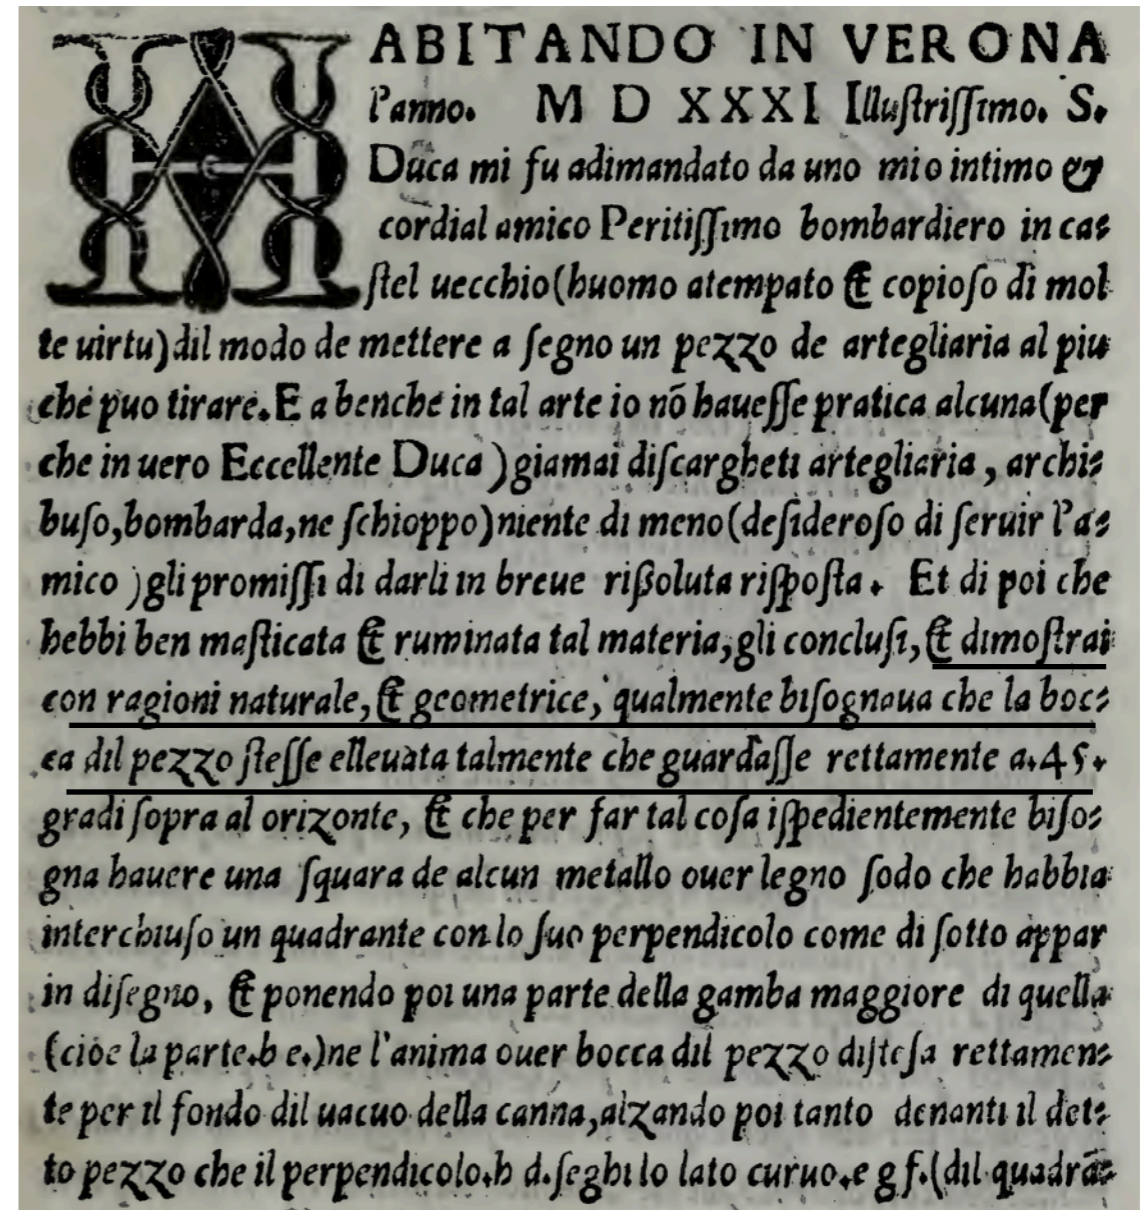 HABITANDO IN VERONA
l'anno. M D XXXI Illuſtriſſimo. S.
Duca mi fu adimandato da uno mio intimo &
cordial amico Peritiſſimo bombardiero in ca⸗
ſtel uecchio(huomo atempato & copioſo di mol
te uirtu)dil modo de mettere a ſegno un pezzo de artegliaria al piu
che puo tirare. E a benche in tal arte io nõ haueſſe pratica alcuna(per
che in uero Eccellente Duca )giamai diſcargheti artegliaria, archi⸗
buſo,bombarda,ne ſchioppo)niente di meno(deſideroſo di ſeruir l'a⸗
mico )gli promiſſi di darli in breue rißoluta riſpoſta. Et di poi che
hebbi ben maſticata & ruminata tal materia,gli concluſi,& dimoſtrai
con ragioni naturale,& geometrice, qualmente biſognaua che la boc⸗
ca dil pezzo ſteſſe elleuata talmente che guardaſſe rettamente a.45.
gradi ſopra al orizonte, & che per far tal coſa iſpedientemente biſo⸗
gna hauere una ſquara de alcun metallo ouer legno ſodo che habbia
interchiuſo un quadrante con lo ſuo perpendicolo come di ſotto appar
in diſegno, & ponendo poi una parte della gamba maggiore di quella
(cioe la parte.b e.)ne l'anima ouer bocca dil pezzo diſteſa rettamen⸗
te per il fondo dil uacuo della canna,alzando poi tanto denanti il det⸗
to pezzo che il perpendicolo.h d.ſeghi lo lato curuo.e g f.(dil quadrã⸗